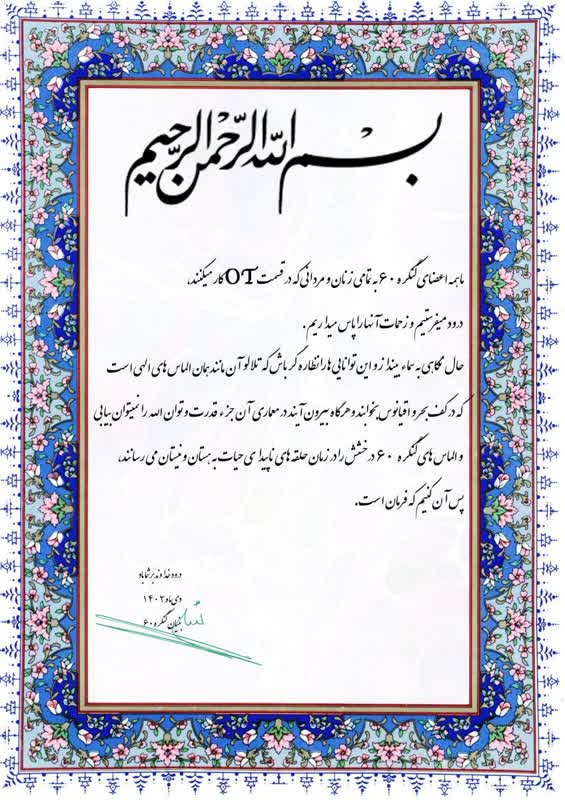 بسم الله الرحمن الرحیم
ما همه اعضای کنگره ۶۰ به تمامی زنان و مردانی که در قسمت OT کار میکنند،
درود میفرستیم و زحمات آنها را پاس میداریم.
حال نگاهی به سماء بیندازو این توانایی ها را نظاره گر باش که تلالو آن مانند همان الماس های الهی است
که در کف بحر و اقیانوس بخوابند و هرگاه بیرون آیند در معماری آن جزء قدرت و توان الله را نمیتوان بیابی
و الماس های کنگره ۶۰ درخشش را در زمان حلقه های ناپیدای حیات به هستان و نیستان می رسانند،
پس آن کنیم که فرمان است.
درود خداوند بر شما باد
دی ماه ۱۴۰۲
بنیان کنگره ۶۰